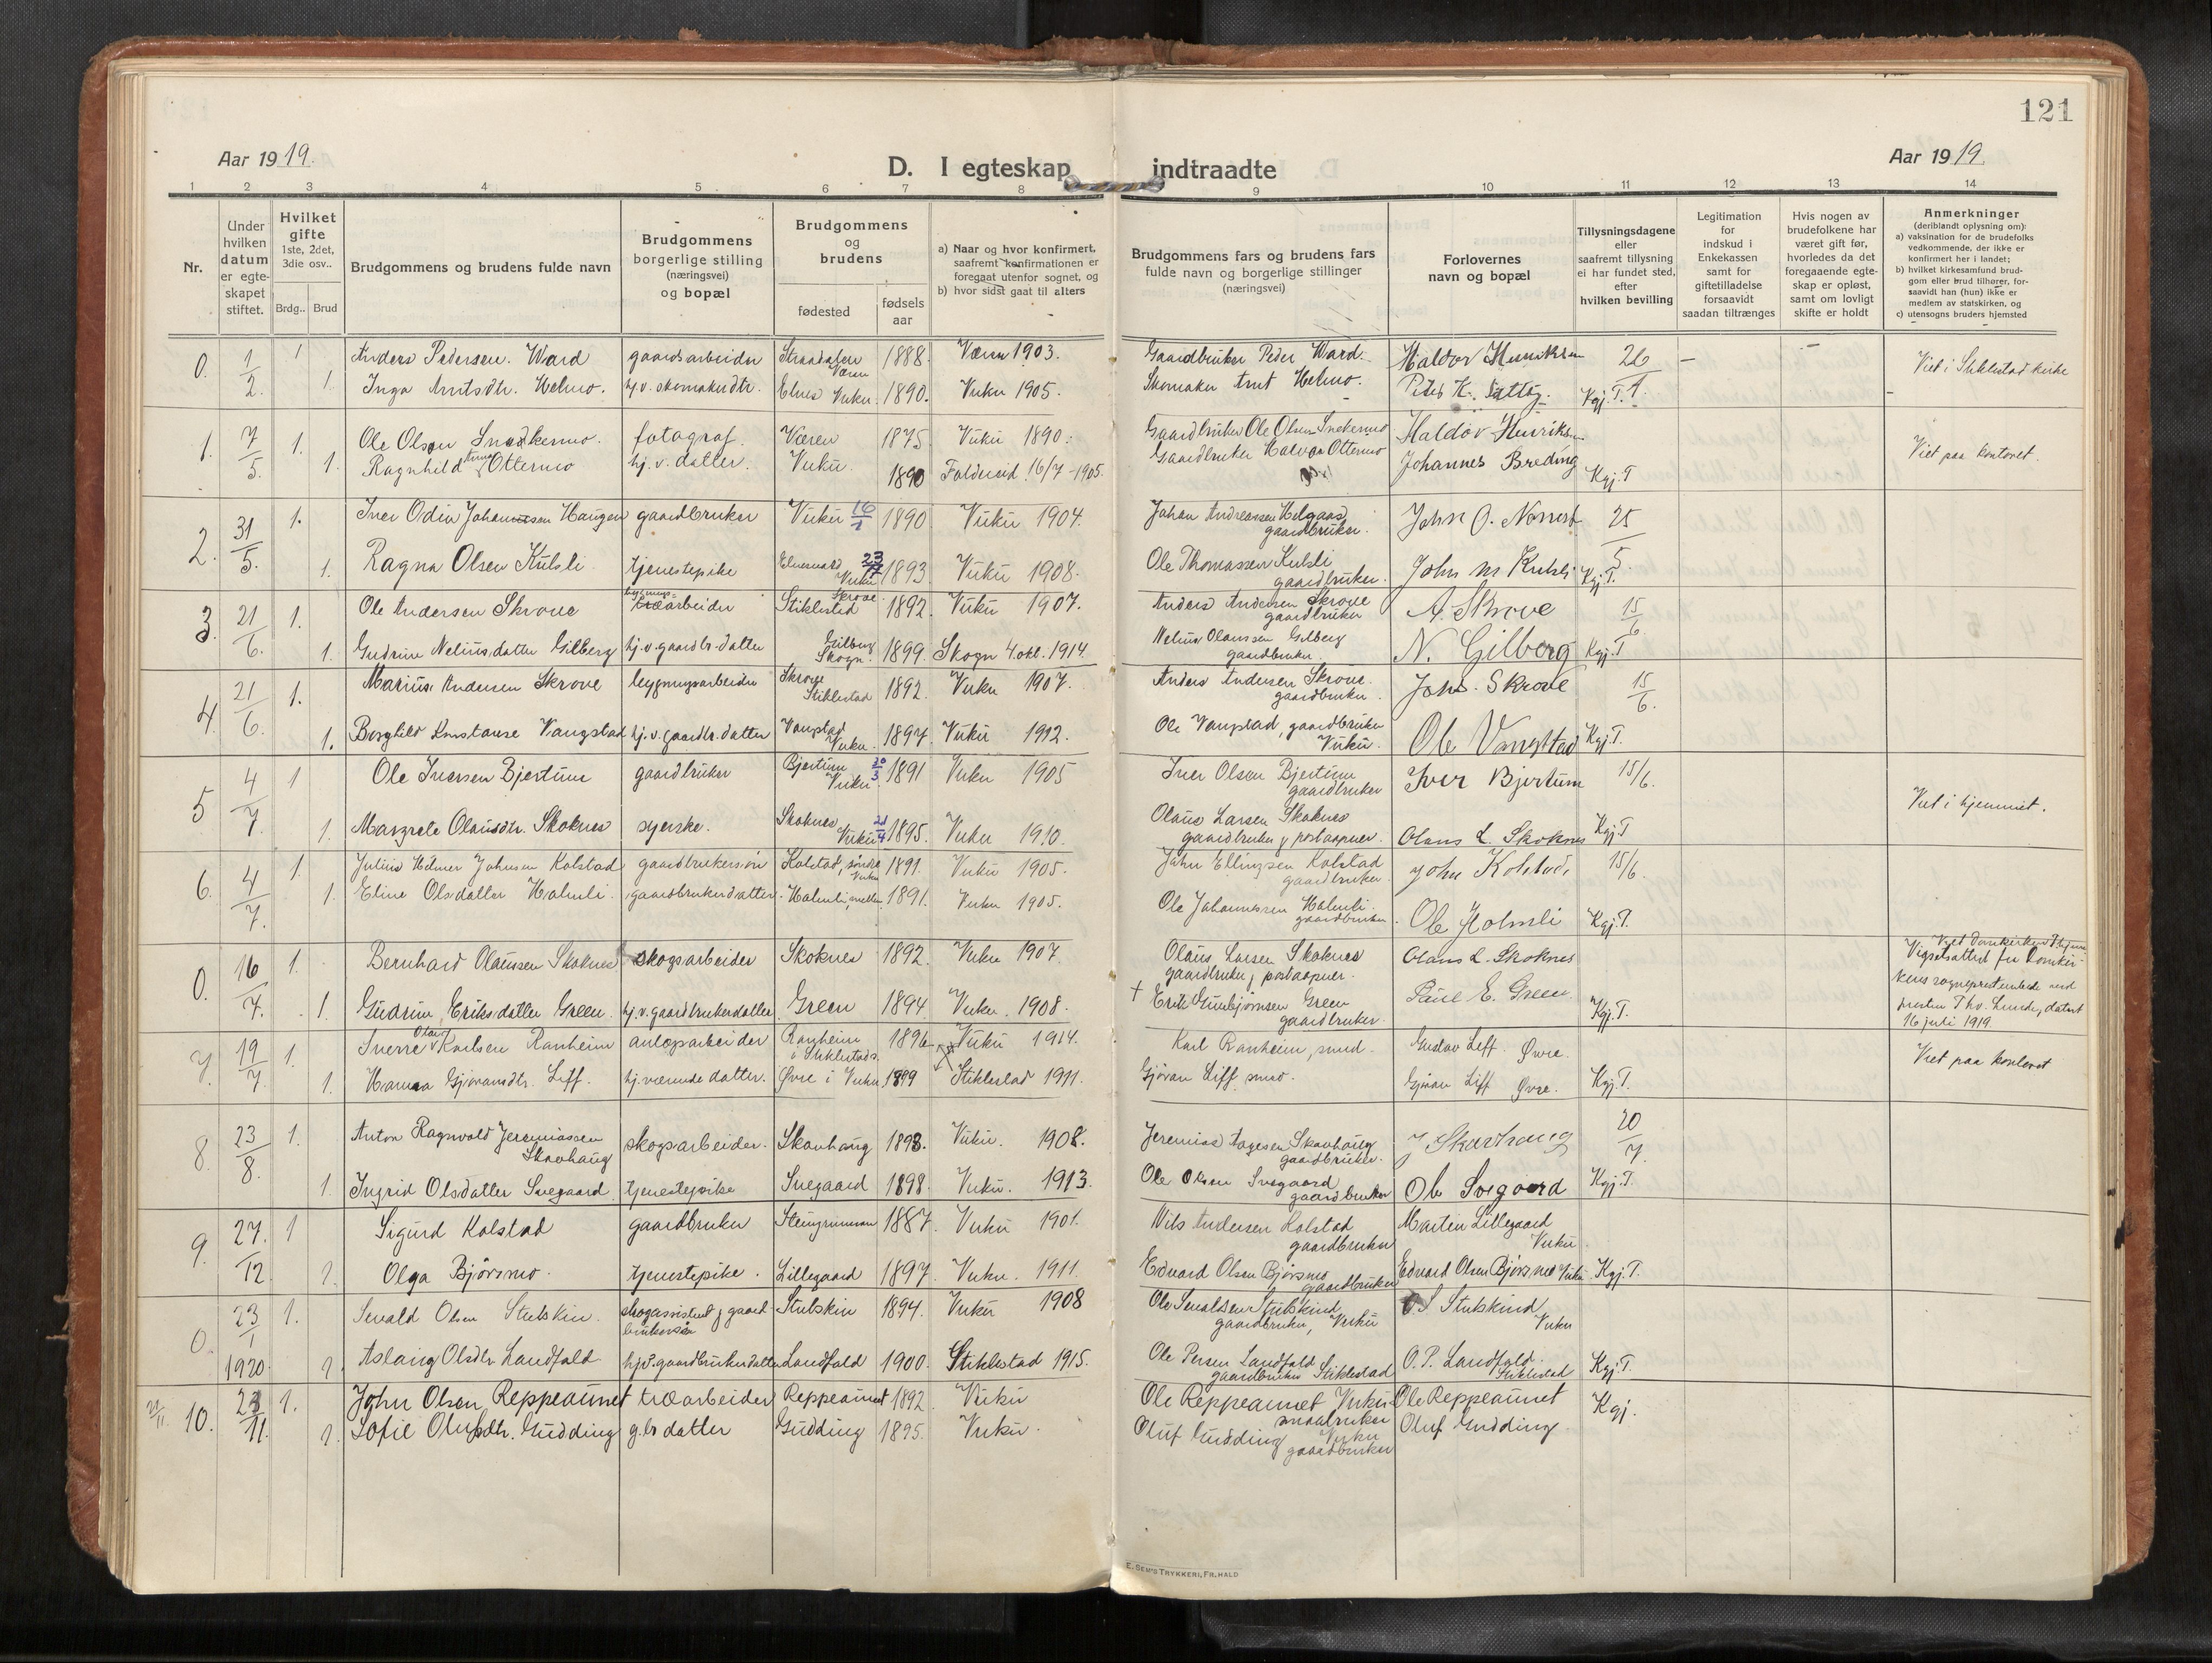 121
Aar 1919.
D. I egteskap indtraadte
Aar 1919.
1 2 3 4 5 6 7 8 9 10 11 12 13 14
Nr.
Under hvilken datum er egte-skapet stiftet.
Hvilket gifte
1ste, 2det, 3die osv..
Brdg.. Brud
Brudgommens og brudens fulde navn
Brudgommens borgerlige stilling
(næringsvei)
og bopæl
Brudgommens og brudens
fødested
fødsels aar
a) Naar og hvor konfirmert, saafremt konfirmationen er foregaat utenfor sognet, og
b) hvor sidst gaat til alters
Brudgommens fars og brudens fars
fulde navn og borgerlige stillinger
(næringsvei)
Forlovernes
navn og bopæl
Tillysningsdagene
eller
saafremt tillysning
ei har fundet sted,
efter
hvilken bevilling
Legitimation
for
indskud i
Enkekassen
samt for
giftetilladelse
forsaavidt
saadan tiltrænges
Hvis nogen av
brudefolkene har
været gift før,
hvorledes da det
foregaaende egte-
skap er opløst,
samt om lovligt
skifte er holdt
Anmerkninger
(deriblandt oplysning om):
a) vaksination for de brudefolks
vedkommende, der ikke er
konfirmert her i landet;
b) hvilket kirkesamfund brud-
gom eller brud tilhører, for-
saavidt han (hun) ikke er
medlem av statskirken, og
c) utensogns bruders hjemsted
0. 1/2. 1 Anders Pedersen Ward gaardsarbeider Væren 1888. Væren 1903. Gaardbruker Peder Ward. Haldor Henriksen 26 – Viet i Stiklestad kirke
1. Inga Arntsdtr. Helmo. hj.v. skomakerdtr. Elnes Vuku. 1890. Vuku 1905. Skomaker Arnt Helmo. Kgj.T.
1. 7/5. 1. Ole Olsen Snekkermo. fotograf. Væren 1875 Vuku 1890. Gaardbruker Ole Olsen Snekermo Haldor Henriksen Viet paa kontoret.
1. Ragnhild Ottermo hj. v. datter. Vuku. 1890 16/7-1905. Gaardbruker Halvor Ottermo Johannes Breding Kgj.T
2. 31/5. 1. Iver Odin Johannesen Haugen gaardbruker Vuku 16/1 1890 Vuku 1904. Johan Andreassen Helgaas gaardbruker. 25/5.
1. Ragna Olsen Kulsli tjenestepike Vuku 1893 Vuku 1908. Ole Thomassen Kulsli gaardbruker. John M Kulsli Kgj.T.
3. 21/6. 1. Ole Andersen Skrove træarbeider Skrove Stiklestad 1892. Vuku 1907. Anders Andersen Skrove gaardbruker A. Skrove 15/6
1. Gudrun Nelius datter Gilberg hj.v. gaardbr. datter Gilberg Skogn. 1899. Skogn 4.okt.1914. Nelius Olaussen Gilberg gaardbruker. N. Gilberg Kgj.T
4. 21/6. 1. Marius Andersen Skrove bygningsarbeider Skrove Stiklestad 1892. Vuku 1907. Anders Andersen Skrove. gaardbruker. Johs. Skrove 15/6.
1. Borghild Konstanse Vangstad hj.v. gaardbr. datter Vangstad Vuku. 1897. Vuku 1912. Ole Vangstad, gaardbruker Vuku. Ole Vangstad Kgj.T.
5 4/7. 1 Ole Iversen Bjertum gaardbruker Bjertum Vuku 20/3 1891 Vuku 1905 Iver Olsen Bjertum gaardbruker Iver Bjertum 15/6. Viet i hjemmet.
1. Margrete Olausdtr. Skoknes syerske. Skoknes Vuku 1895. Vuku 1910. Olaus Larsen Skoknes gaardbruker & postaapner. Olaus L. Skoknes Kgj.T
6. 4/7. 1. Julius Helmer Johnsen Kolstad gaardbrukersøn Kolstad, søndre Vuku 1891. Vuku 1905. John Ellingsen Kolstad gaardbruker John Kolstad. 15/6.
1. Eline Olsdatter Holmli. gaardbrukerdatter. Holmli, mellem 1891. Vuku 1905. Ole Johannesen Holmli. gaardbruker. Ole Holmli Kgj.T.
0. 16/7. 1. Bernhard Olaussen Skoknes skogsarbeider Skoknes 1892. Vuku 1907. Olaus Larsen Skoknes gaardbruker & postaapner. Olaus L. Skoknes Vigselsattest fra Domkirkens sogneprestembede ved presten Thv. Lunde, datert 16 juli 1919.
1. Gudrun Eriksdatter Green. hj.v. gaardbrukerdatter. Green 1894. Vuku. 1908. † Erik Gunbjørnsen Green gaardbruker. Paul E. Green. Kgj.T.
7. 19/7. 1. Sverre Olav Karlsen Ranheim anlegsarbeider Ranheim i Stiklestad. 1896 Vuku 1914. Karl Ranheim, smed. Gustav Leff. Øvre. Viet paa kontoret
1. Hanna Gjøransdtr. Leff. hj.værende datter. Øvre i Vuku 1899 Stiklestad 1911. Gjøran Leff smed. Gjøran Leff Øvre. Kgj.T.
8. 23/8. 1. Anton Ragnvald Jeremiassen Skavhaug skogsarbeider. Skavhaug 1893. Vuku. 1908. Jeremias Aagesen Skavhaug gaardbruker. J Skavhaug 20/7.
1. Ingrid Olsdatter Svegaard tjenestepike Svegaard 1898. Vuku. 1913. Ole Olsen Svegaard gaardbruker Ole Svegaard Kgj.T.
9. 27./12 1 Sigurd Kolstad gaardbruker 1887. Vuku 1901. Nils Andersen Kolstad gaardbruker Martin Lillegaard Vuku
Olga Bjørsmo. tjenestepike. Lillegaard 1897. Vuku. 1911. Edvard Olsen Bjørsmo gaardbruker Edvard Olsen Bjørsmo Vuku Kgj.T.
0. 23/1 1920. 1. Sevald Olsen Stubskin. skogassistent & gaardbrukersøn Stubskin 1894. Vuku 1908 Ole Sevaldsen Stubskind gaardbruker, Vuku O S Stubskind Vuku
Aslaug Olsdtr Landfald hj.v. gaardbrukerdatter Landfald 1900. Stiklestad 1915. Ole Persen Landfald gaardbruker Stiklestad O. P. Landfald. Stiklestad Kgj.T.
10. 1. John Olsen Reppeaunet træarbeider Reppeaunet 1892. Vuku Ole Reppeaunet Vuku smaabruker Ole Reppeaunet Kgj.
Sofie Olufsdtr. Gudding g.br datter Gudding 1895. Vuku. Oluf Gudding Vuku gaardbruker Oluf Gudding
E. SEM'S TRYKKERI, FR.HALD